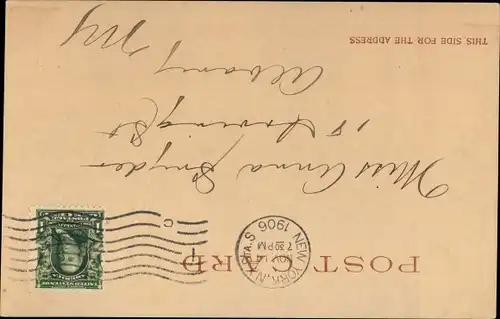 POST CARD
NEW YORK, N.Y. STA. S
7 30 PM
1906
C
THIS SIDE FOR THE ADDRESS
Miss Anna Snyder
18 Irving St
Albany
NY